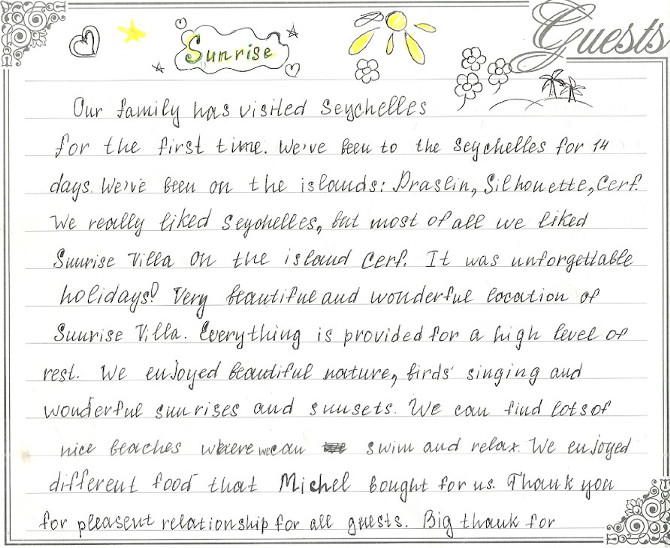 Guests
Sunrise
Our family has visited Seychelles
for the first time. We've been to the Seychelles for 14
days. We've been on the islands: Praslin, Silhouette, Cerf.
We really liked Seychelles, but most of all we liked
Sunrise Villa on the island Cerf. It was unforgettable
holidays! Very beautiful and wonderful location of
Sunrise Villa. Everything is provided for a high level of
rest. We enjoyed beautiful nature, birds' singing and
wonderful sunrises and sunsets. We can find lots of
nice beaches where we can swim and relax. We enjoyed
different food that Michel bought for us. Thank you
for pleasent relationship for all guests. Big thank for